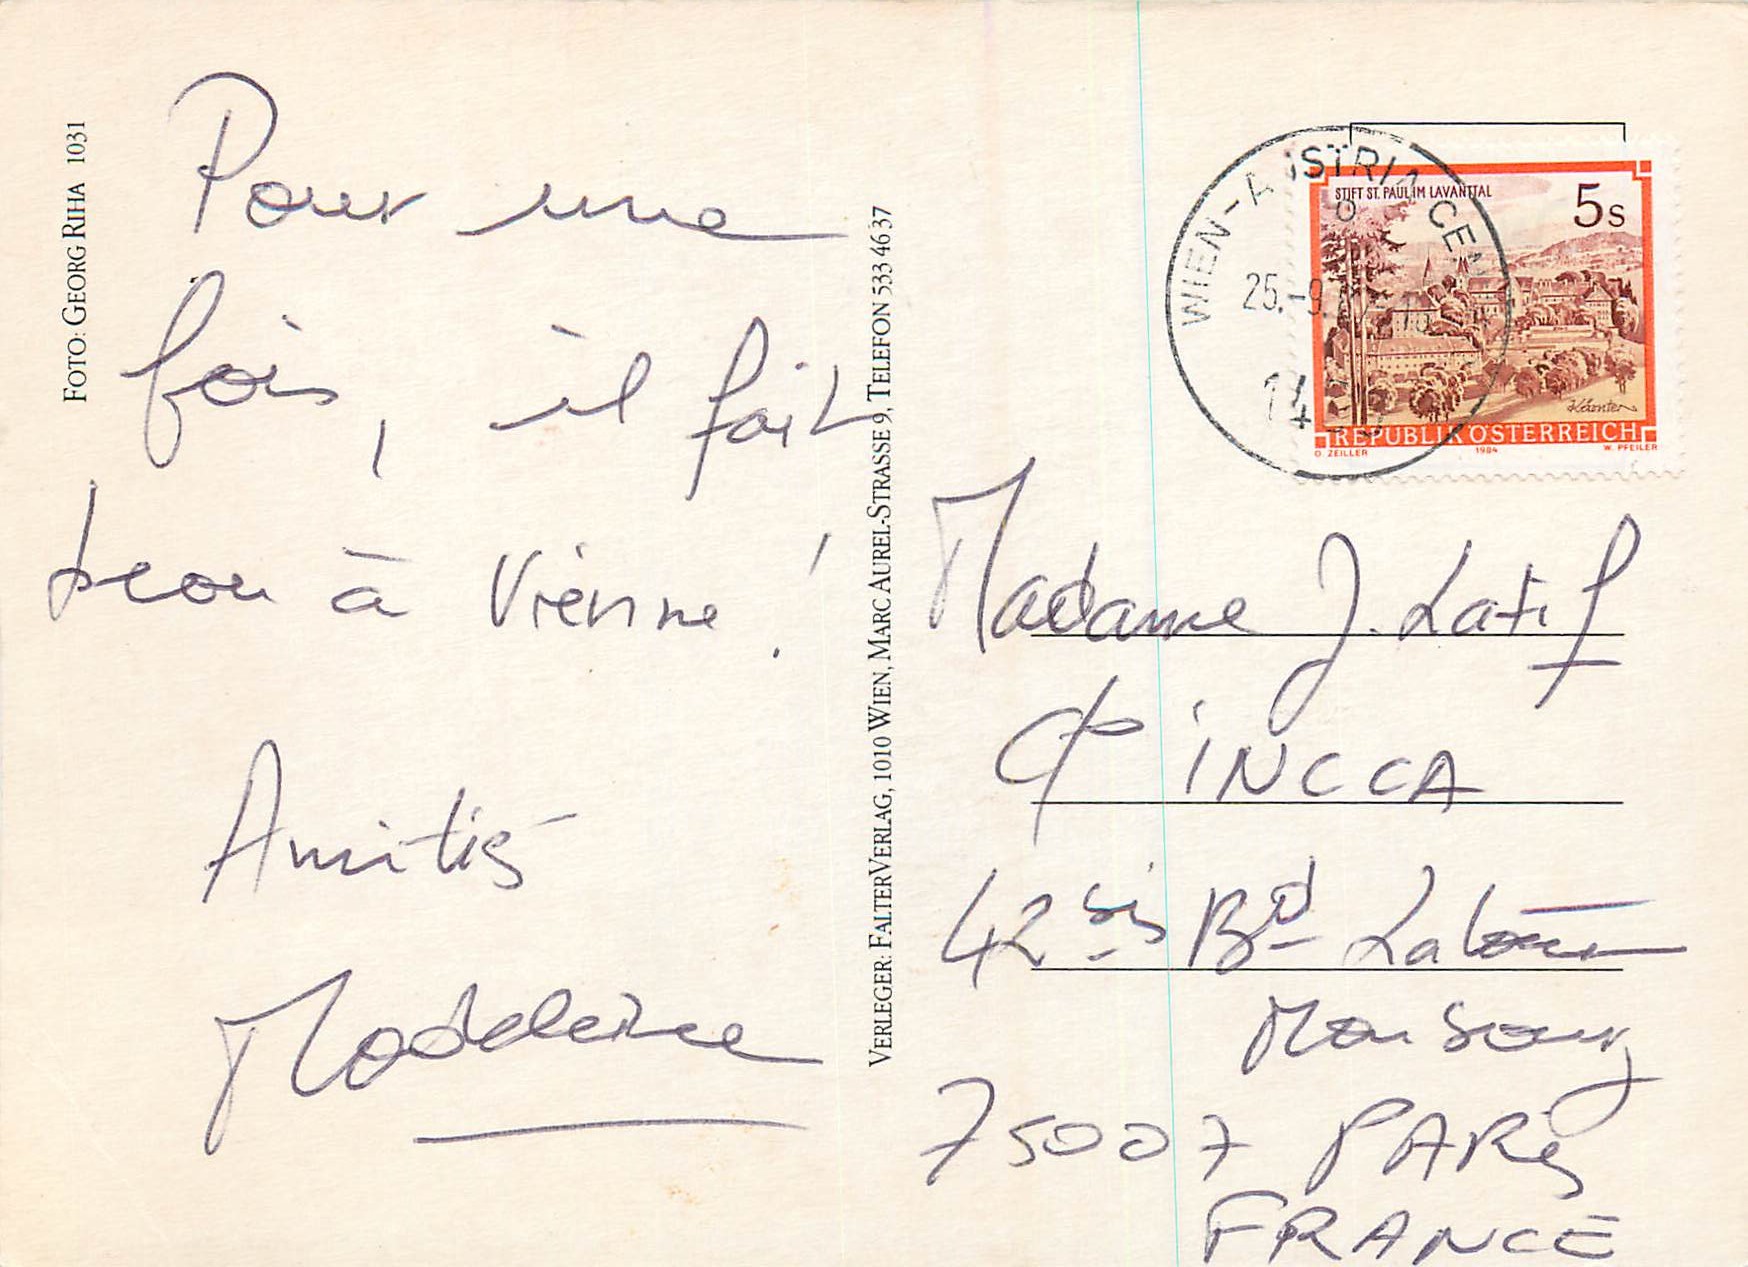 FOTO: GEORG RIHA 1031
Pour une
fois, il fait
beau à Vienne !
Amitiés
Madeleine
VERLEGER: FALTERVERLAG, 1010 WIEN, MARC AUREL-STRASSE 9, TELEFON 533 46 37
WIEN-AUSTRIA CEN
25.-9.
STIFT ST. PAUL IM LAVANTTAL
5s
REPUBLIK ÖSTERREICH
O. ZEILLER 1984 W. PFEILER
Madame J. Latif
INCCA
42 bis Bd Latour
Maubourg
75007 PARIS
FRANCE